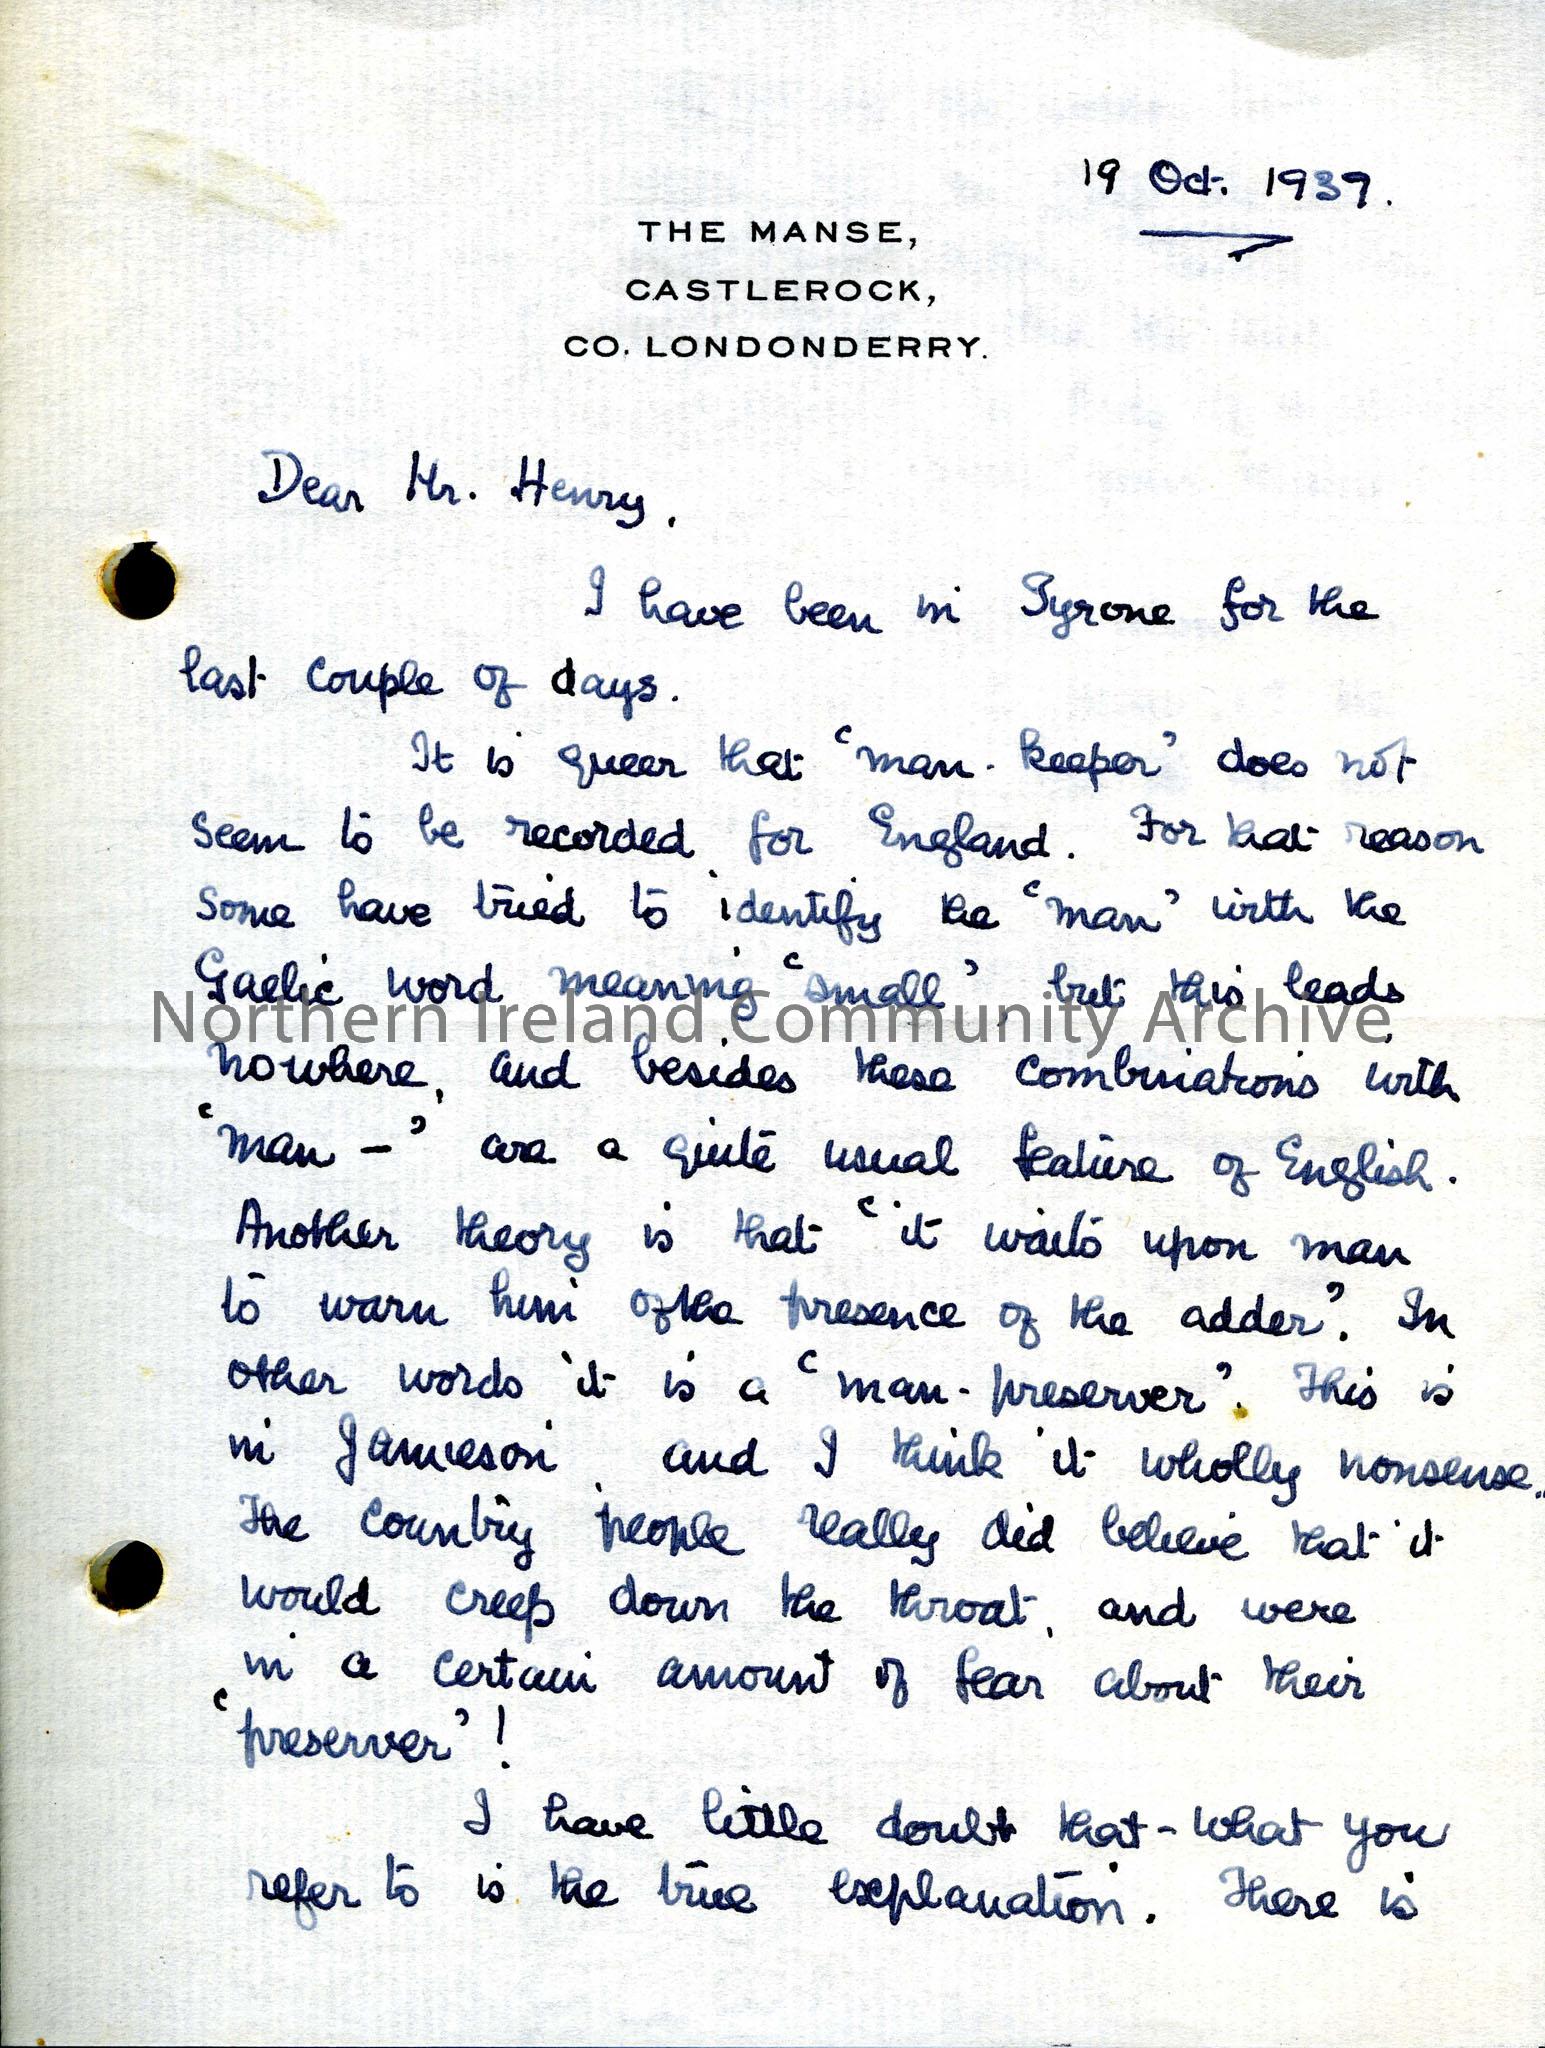 19 Oct. 1939.
THE MANSE,
CASTLEROCK,
CO. LONDONDERRY.
Dear Mr. Henry,
I have been in Tyrone for the
last couple of days.
It is queer that 'man-keeper' does not
seem to be recorded for England. For that reason
some have tried to identify the 'man' with the
Gaelic word meaning 'small', but this leads
Northern Ireland Community Archive
nowhere, and besides these combinations with
'man –' are a quite usual feature of English.
Another theory is that 'it waits upon man
to warn him of the presence of the adder'. In
other words it is a 'man-preserver'. This is
in Jamieson, and I think it wholly nonsense.
The country people really did believe that it
would creep down the throat, and were
in a certain amount of fear about their
'preserver'!
I have little doubt that what you
refer to is the true explanation. There is